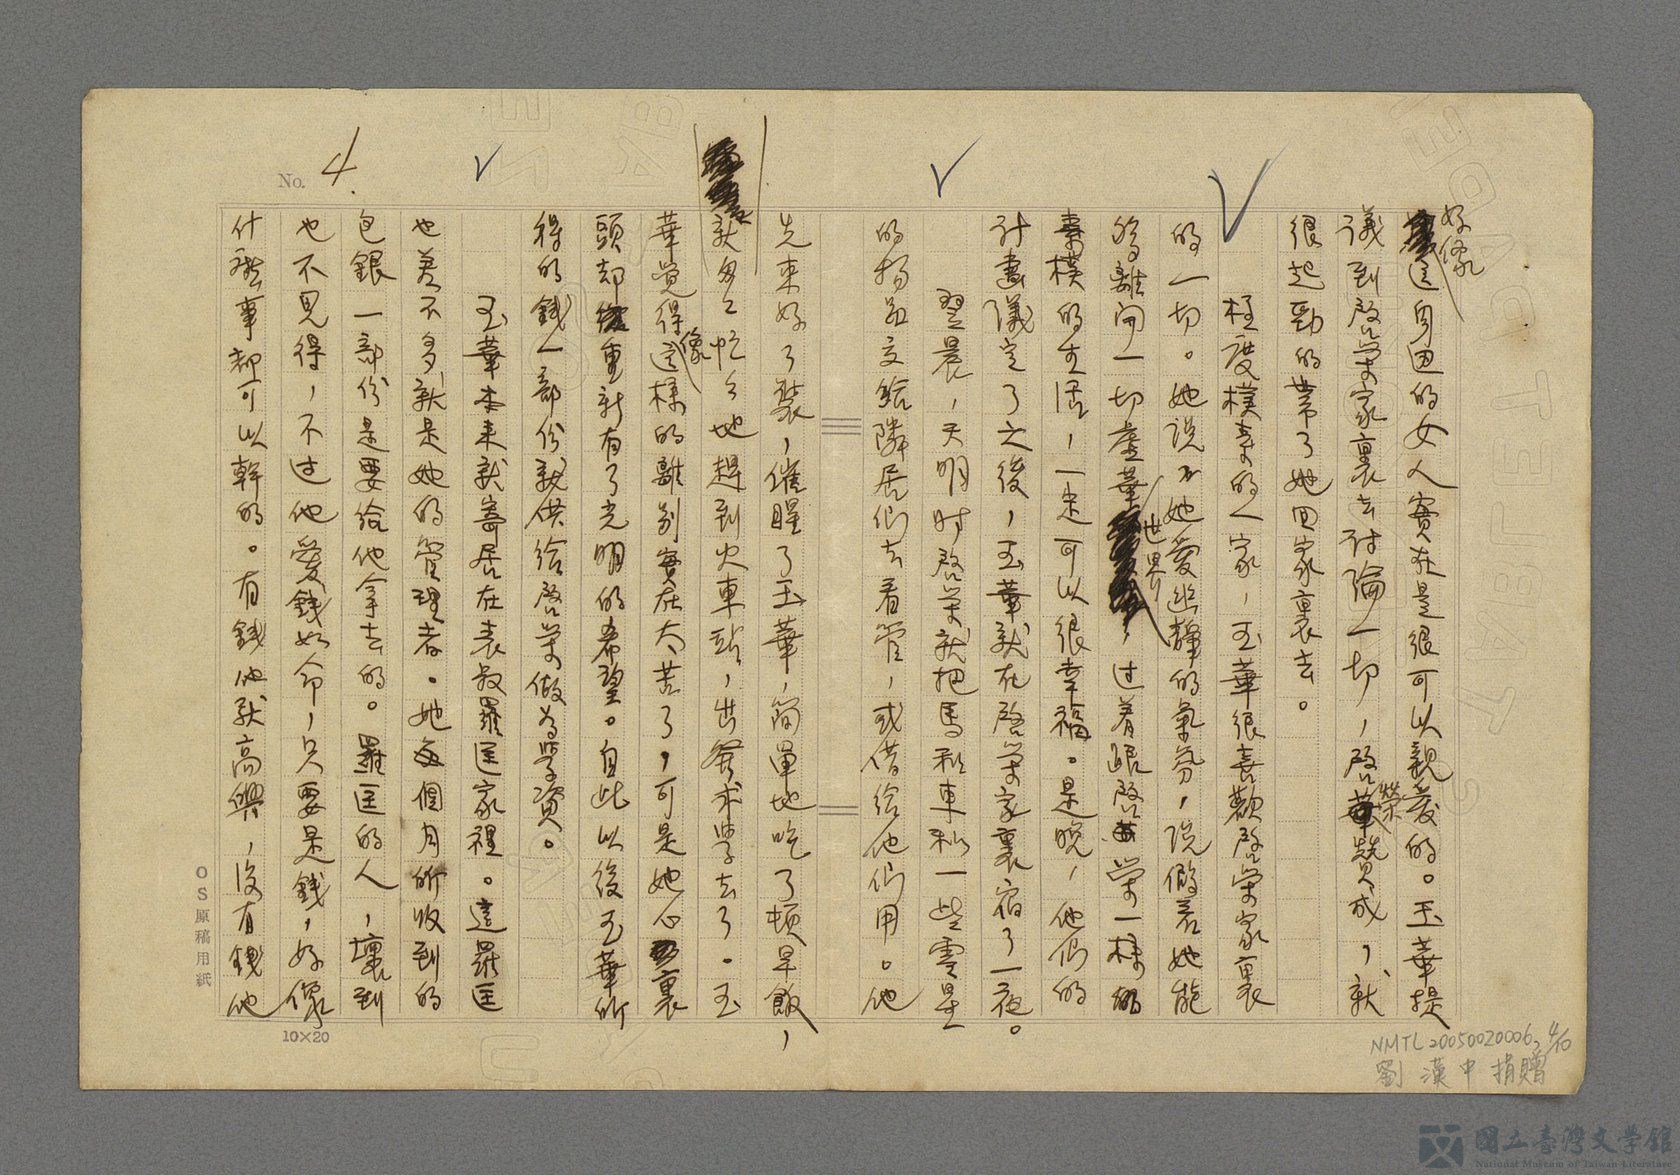 好像
這自由的女人實在是很可以親愛的。玉華提
議到啓榮家裏去討論一切，啓榮贊成，就
很起勁的帶了她回家裏去。
極度樸素的一家，玉華很喜歡啓榮家裏
的一切。她說她愛幽靜的氣氛，說假若她能
夠離開一切虛華世界，过着跟啓榮一樣的
素樸的生活，一定可以很幸福。是晚，他們的
計畫議定了之後，玉華就在啓榮家裏宿了一夜。
翌晨，天明时啓榮就把馬和車和一些零星
的物品交給隣居們去看管，或借給他們用。他
先來好了裝，催醒了玉華，簡單地吃了頓早飯，
就匆匆忙忙地趕到火車站，出發求學去了。玉
華覺得像這樣的離別實在太苦了，可是她心裏
頭却重新有了光明的希望。自此以後玉華所
得的錢一部份就供給啓榮做为学資。
玉華本來就寄居在表叔羅匡家裡。這羅匡
也差不多就是她的管理者。她每個月所收到的
包銀一部份是要給他拿去的。羅匡的人，壞到
也不見得，不过他愛錢如命，只要是錢，好像
什麼事都可以幹的。有錢他就高興，沒有錢他
No. 4.
OS原稿用紙
10×20
NMTL20050020006, 4/10
劉漢中捐贈
國立臺灣文學館
National Museum of Taiwan Literature